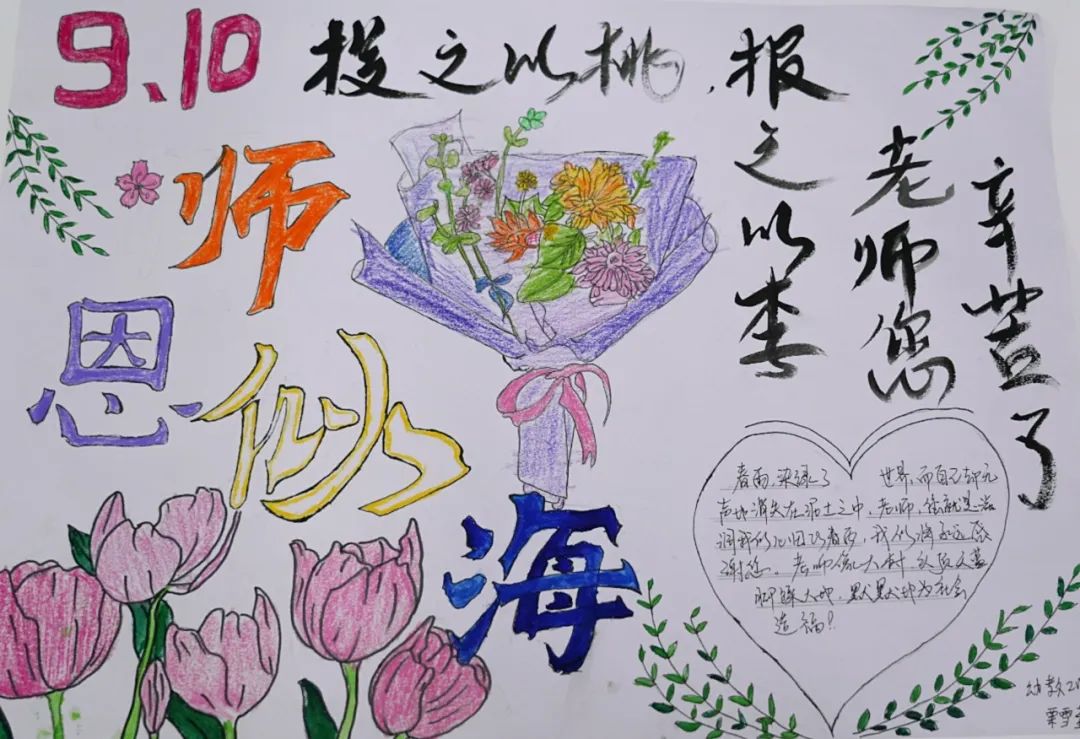 9、10
投之以桃,报之以李
老师您
辛苦了
师恩似海
春雨,染绿了 世界,而自己却无
声地消失在泥土之中,老师,您就是滋
润我们心田的春雨,我们将永远感
谢您。老师像大树,
大地,默默地为社会
造福!
幼教